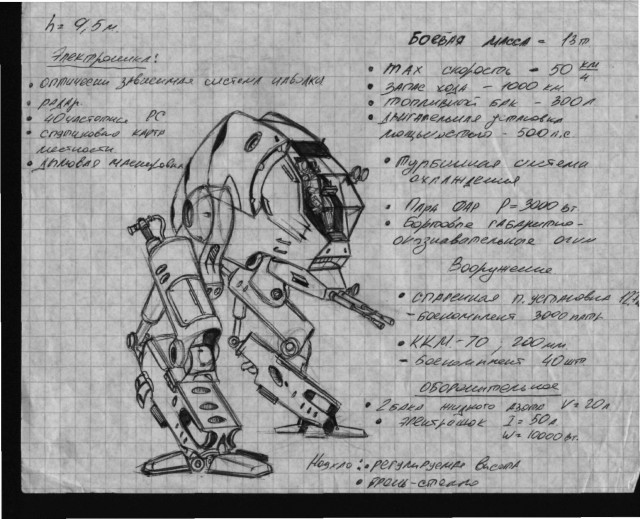 h = 9,5 м.
Электроника:
• оптически зависимая система наводки
• радар.
• 40 частотная РС
• спутниковая карта
местности
• дымовая маскировка
Боевая масса = 13т.
• max скорость - 50 км/ч
• Запас хода - 1000 км.
• топливный бак - 300л
• двигательная установка
мощностью - 500 л.с
• Турбинная система
охлаждения
• Пара фар P = 3000 вт
• Бортовые габаритно-
опознавательные огни
Вооружение
• спаренная п. установка 12,7
- боекомплект 3000 патр.
• ККМ-70, 200мм.
- боекомплект 40шт.
Оборонительное
• 2 бака жидкого азота V = 20л
• электрошок I = 50А
W = 10000 Вт.
• регулируемая высота
• бронь-стекло